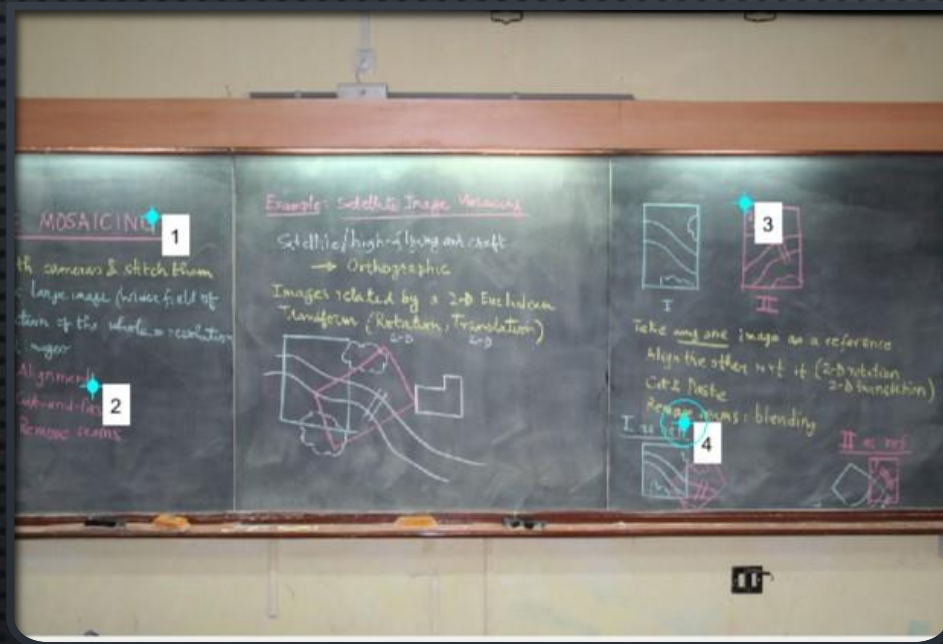 MOSAICING
th cameras & stitch them
large image (wider field of
tion of the whole resolution
images
Alignment
Cut-and-Pas
Remove seams
Example: Satellite Image Mosaicing
Satellite/high-flying aircraft
→ Orthographic
Images related by a 2-D Euclidean
Transform (Rotation, Translation)
2-D 2-D
I
II
Take any one image as a reference
Align the other wrt it (2-D rotation
2-D translation)
Cut & Paste
Remove seams: blending
I as ref
II as ref
1
2
3
4